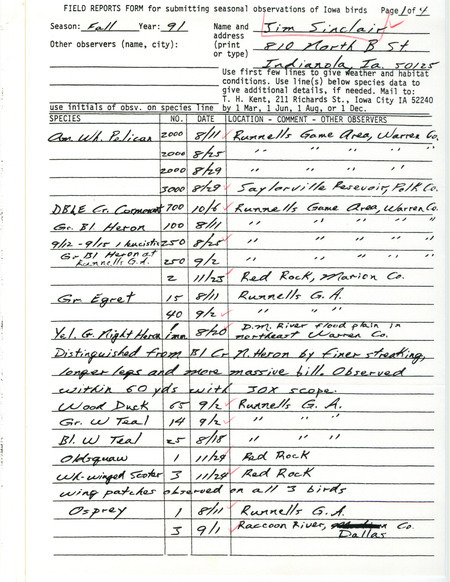 FIELD REPORTS FORM for submitting seasonal observations of Iowa birds Page 1 of 4
Season: Fall Year: 91 Name and address (print or type) Jim Sinclair
Other observers (name, city): 810 North B St
Indianola, Ia. 50125
Use first few lines to give weather and habitat
conditions. Use line(s) below species data to
give additional details, if needed. Mail to:
T. H. Kent, 211 Richards St., Iowa City IA 52240
use initials of obsv. on species line by 1 Mar, 1 Jun, 1 Aug, or 1 Dec.
SPECIES NO. DATE LOCATION - COMMENT - OTHER OBSERVERS
Am Wh. Pelican 2000 8/11 Runnells Game Area, Warren Co.
2000 8/25 " " " "
2000 8/29 " " " "
3000 8/29 Saylorville Resevoir, Polk Co.
DB&E Cr. Cormorant 700 10/6 Runnells Game Area, Warren Co.
Gr. Bl Heron 100 8/11 " " " "
9/12 - 9/15 1 leucistic 250 8/25 " " " "
Gr Bl Heron at
Runnells G.A. 250 9/2 " " " "
2 11/25 Red Rock, Marion Co.
Gr Egret 15 8/11 Runnells G. A.
40 9/2 " " "
Yel. C. Night Heron 1 imm 8/20 D.M. River flood plain in
northeast Warren Co.
Distinguished from Bl Cr N. Heron by finer streaking,
longer legs and more massive bill. Observed
within 60 yds with 30X scope.
Wood Duck 65 9/2 Runnells G. A.
Gr. W Teal 14 9/2 " " "
Bl. W Teal 25 8/18 " " "
Oldsquaw 1 11/29 Red Rock
Wh-winged Scoter 3 11/29 Red Rock
wing patches observed on all 3 birds
Osprey 1 8/11 Runnells G. A.
3 9/1 Raccoon River, Co.
Dallas